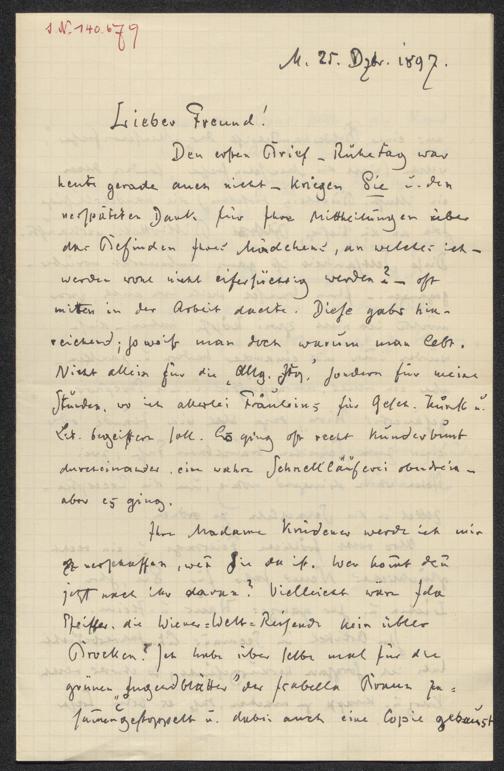 I. N. 140.679
M. 25. Dzbr. 1897.
Lieber Freund!
Den ersten Brief – Ruhetag war
heute gerade auch nicht – kriegen Sie u. den
verspäteten Dank für Ihre Mittheilungen über
das Befinden Ihres Mädchens, an welches ich –
werden wohl nicht eifersüchtig werden? – oft
mitten in der Arbeit dachte. Diese gabs hin-
reichend; so weiß man doch warum man lebt.
Nicht allein für die „Allg. Ztg.“ sondern für meine
Stunden, wo ich allerlei Fräuleins für Gesch. Kunst u.
Lit. begeistern soll. Es ging oft recht kunderbunt
durcheinander, eine wahre Schnellläuferei obendrein –
aber es ging.
Ihre Madame Krüdener werde ich mir
verschaffen, wen̄ Sie da ist. Wer kom̄t den̄
jetzt nach ihr daran? Vielleicht wäre Ida
Pfeiffer, die Wiener=Welt=Reisende kein übler
Brocken? Ich habe über selbe mal für die
grünen „Jugendblätter“ der Isabella Braun zu=
sam̄engestoppelt u. dabei auch eine Copie gebaust